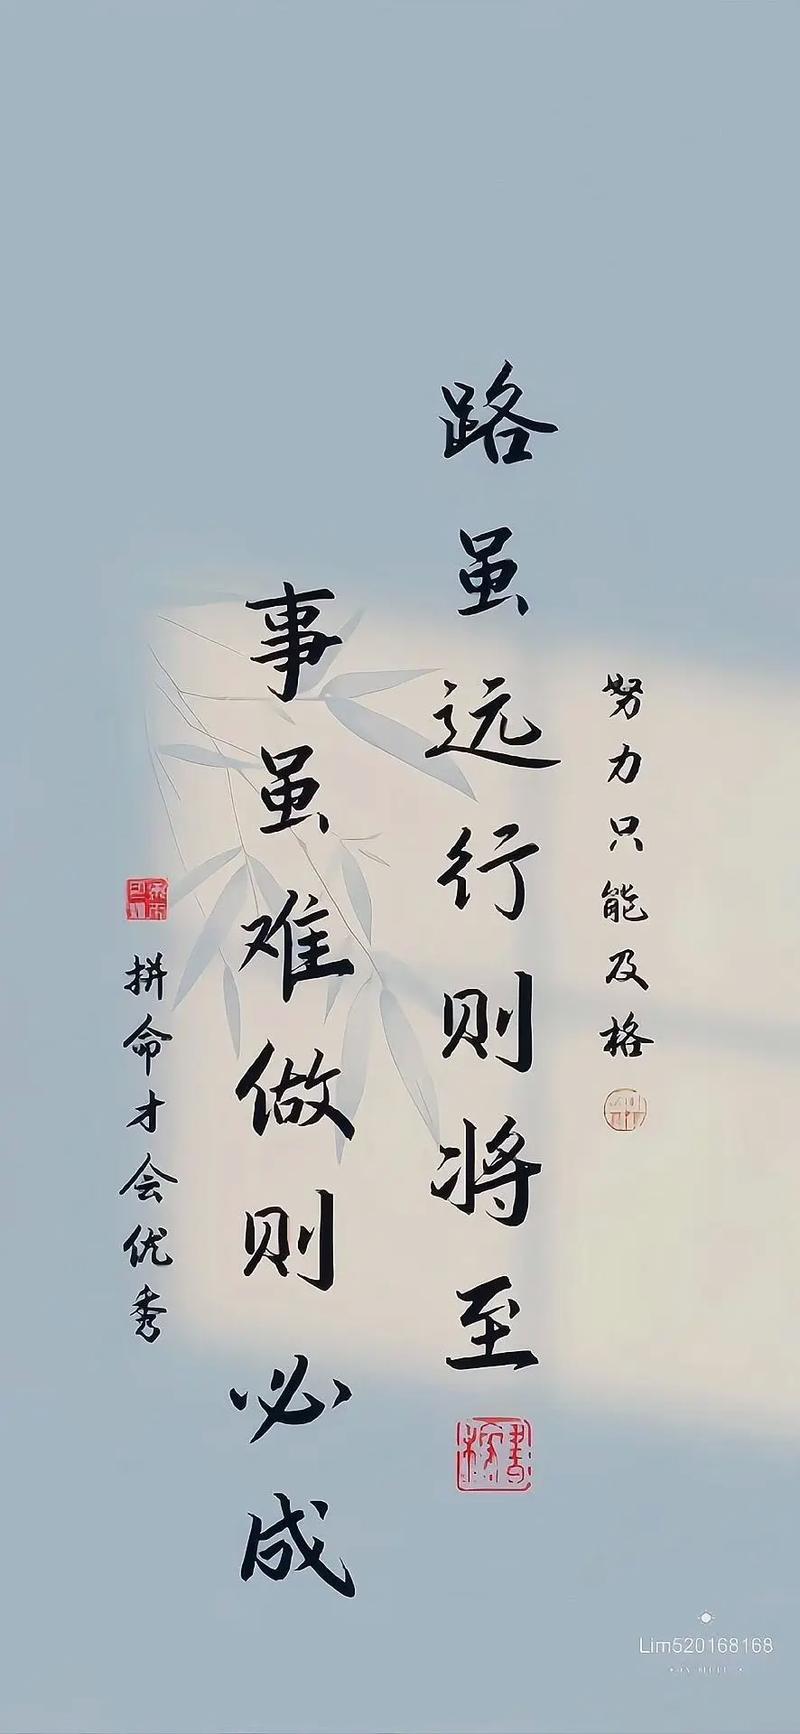 努力只能及格
路虽远行则将至
事虽难做则必成
拼命才会优秀
Lim520168168